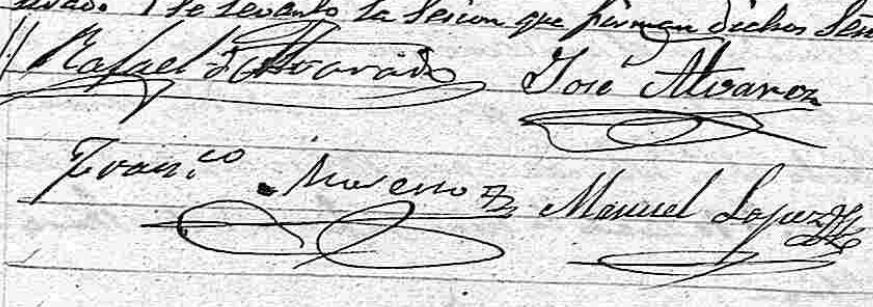 se levanto la Sesion que firman dichos Sen
Rafael Alvarado José Alvarez
Fran.co Moreno Manuel Lopez